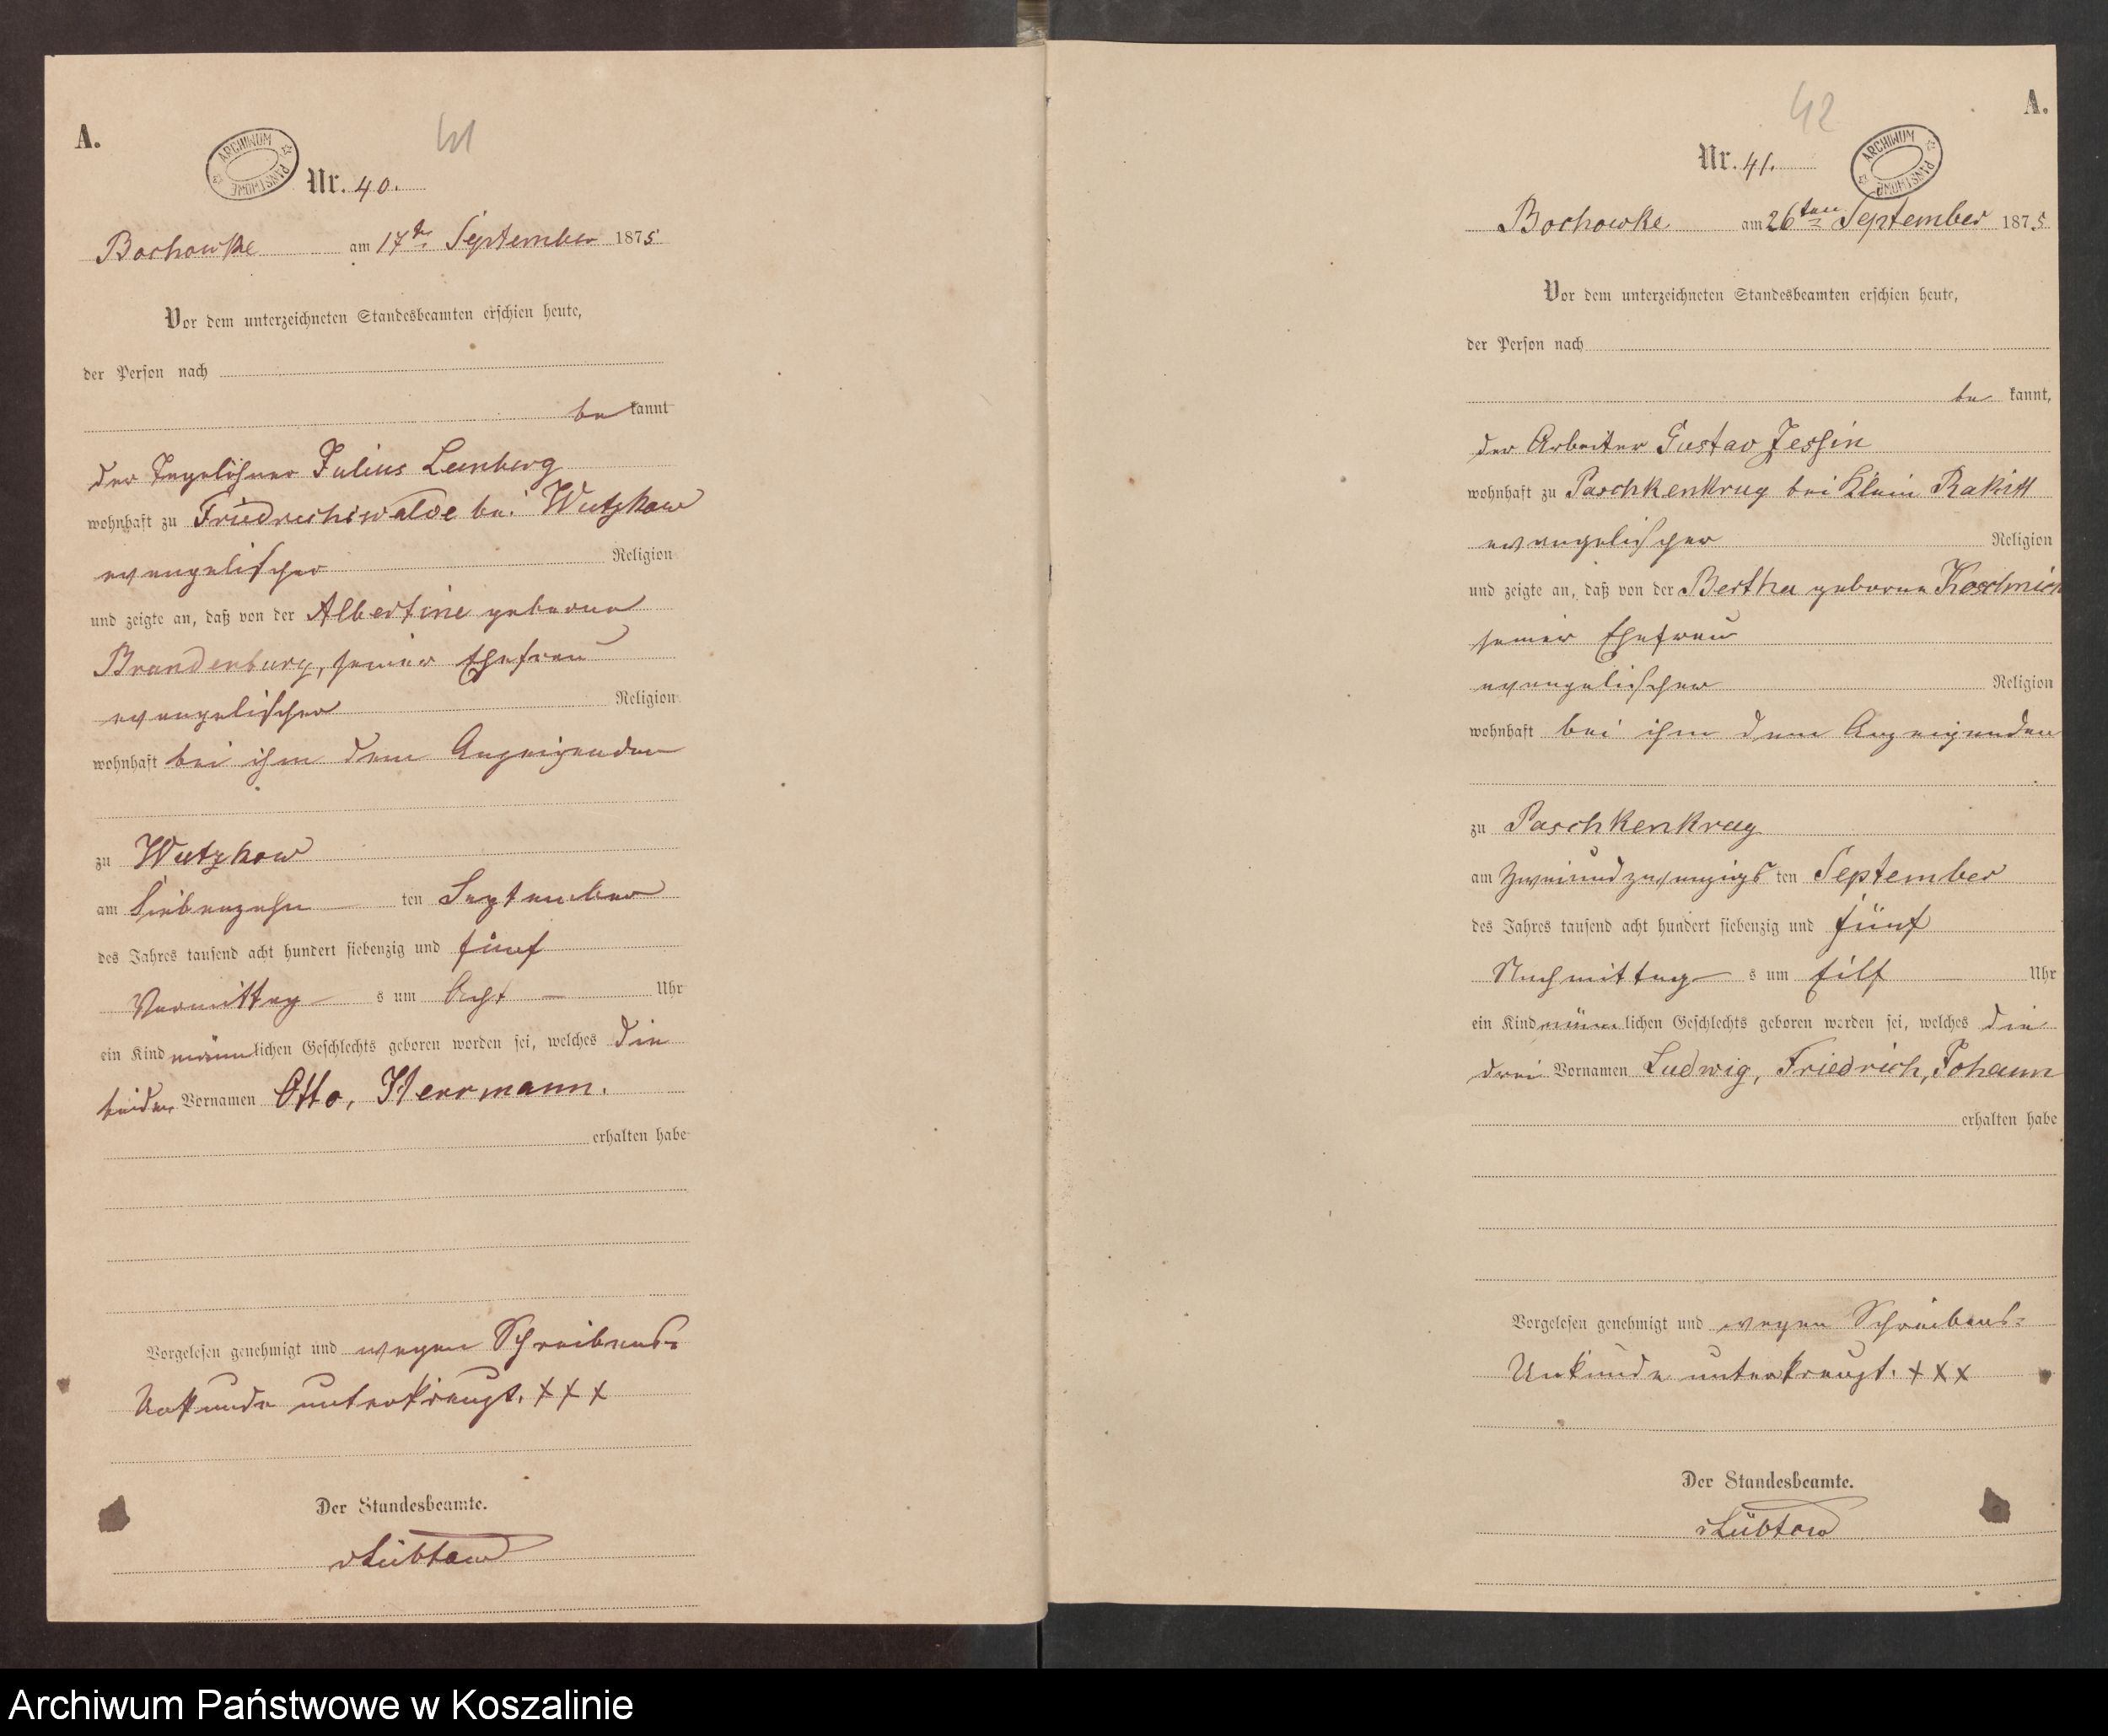 A.
41
ARCHIWUM PAŃSTWOWE
Nr. 40.
Bochowke am 17t. September 1875
Vor dem unterzeichneten Standesbeamten erschien heute,
der Person nach
be kannt
der Tagelöhner Julius Lemberg
wohnhaft zu Friedrichswalde bei Wutzkow
evangelischer Religion
und zeigte an, daß von der Albertine geborne
Brandenburg, seiner Ehefrau
evangelischer Religion
wohnhaft bei ihm dem Anzeigenden
zu Wutzkow
am Siebenzehn ten September
des Jahres tausend acht hundert siebenzig und fünf
Vormittag s um Acht Uhr
ein Kind männlichen Geschlechts geboren worden sei, welches die
beiden Vornamen Otto, Herrmann.
erhalten habe
Vorgelesen genehmigt und wegen Schreibens-
Unkunde unterkreuzt. XXX
Der Standesbeamte.
vLübtow
A.
42
Nr. 41.
ARCHIWUM PAŃSTWOWE
Bochowke am 26ten September 1875
Vor dem unterzeichneten Standesbeamten erschien heute,
der Person nach
be kannt,
der Arbeiter Gustav Jessin
wohnhaft zu Paschkenkrug bei Klein Rakitt
evangelischer Religion
und zeigte an, daß von der Bertha geborne
seiner Ehefrau
evangelischer Religion
wohnhaft bei ihm dem Anzeigenden
zu Paschkenkrug
am Zweiundzwanzigs ten September
des Jahres tausend acht hundert siebenzig und fünf
Nachmittag s um Eilf Uhr
ein Kind männlichen Geschlechts geboren worden sei, welches die
drei Vornamen Ludwig, Friedrich, Johann
erhalten habe
Vorgelesen genehmigt und wegen Schreibens-
Unkunde unterkreuzt. XXX
Der Standesbeamte.
vLübtow
Archiwum Państwowe w Koszalinie